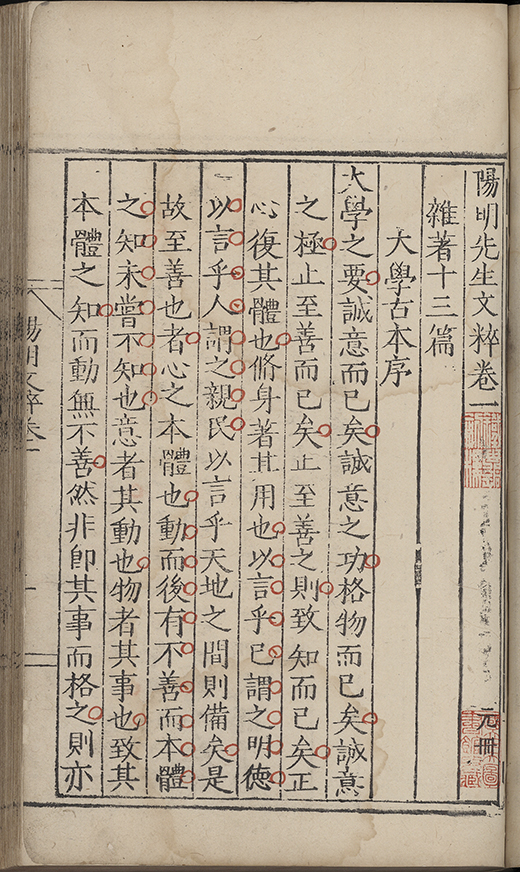 陽明先生文粹卷一
元冊
雜著十三篇
大學古本序
大學之要誠意而已矣誠意之功格物而已矣誠意
之極止至善而已矣止至善之則致知而已矣正
心復其體也脩身著其用也以言乎己謂之明德
以言乎人謂之親民以言乎天地之間則備矣是
故至善也者心之本體也動而後有不善而本體
之知未嘗不知也意者其動也物者其事也致其
本體之知而動無不善然非卽其事而格之則亦
陽明文粹卷一